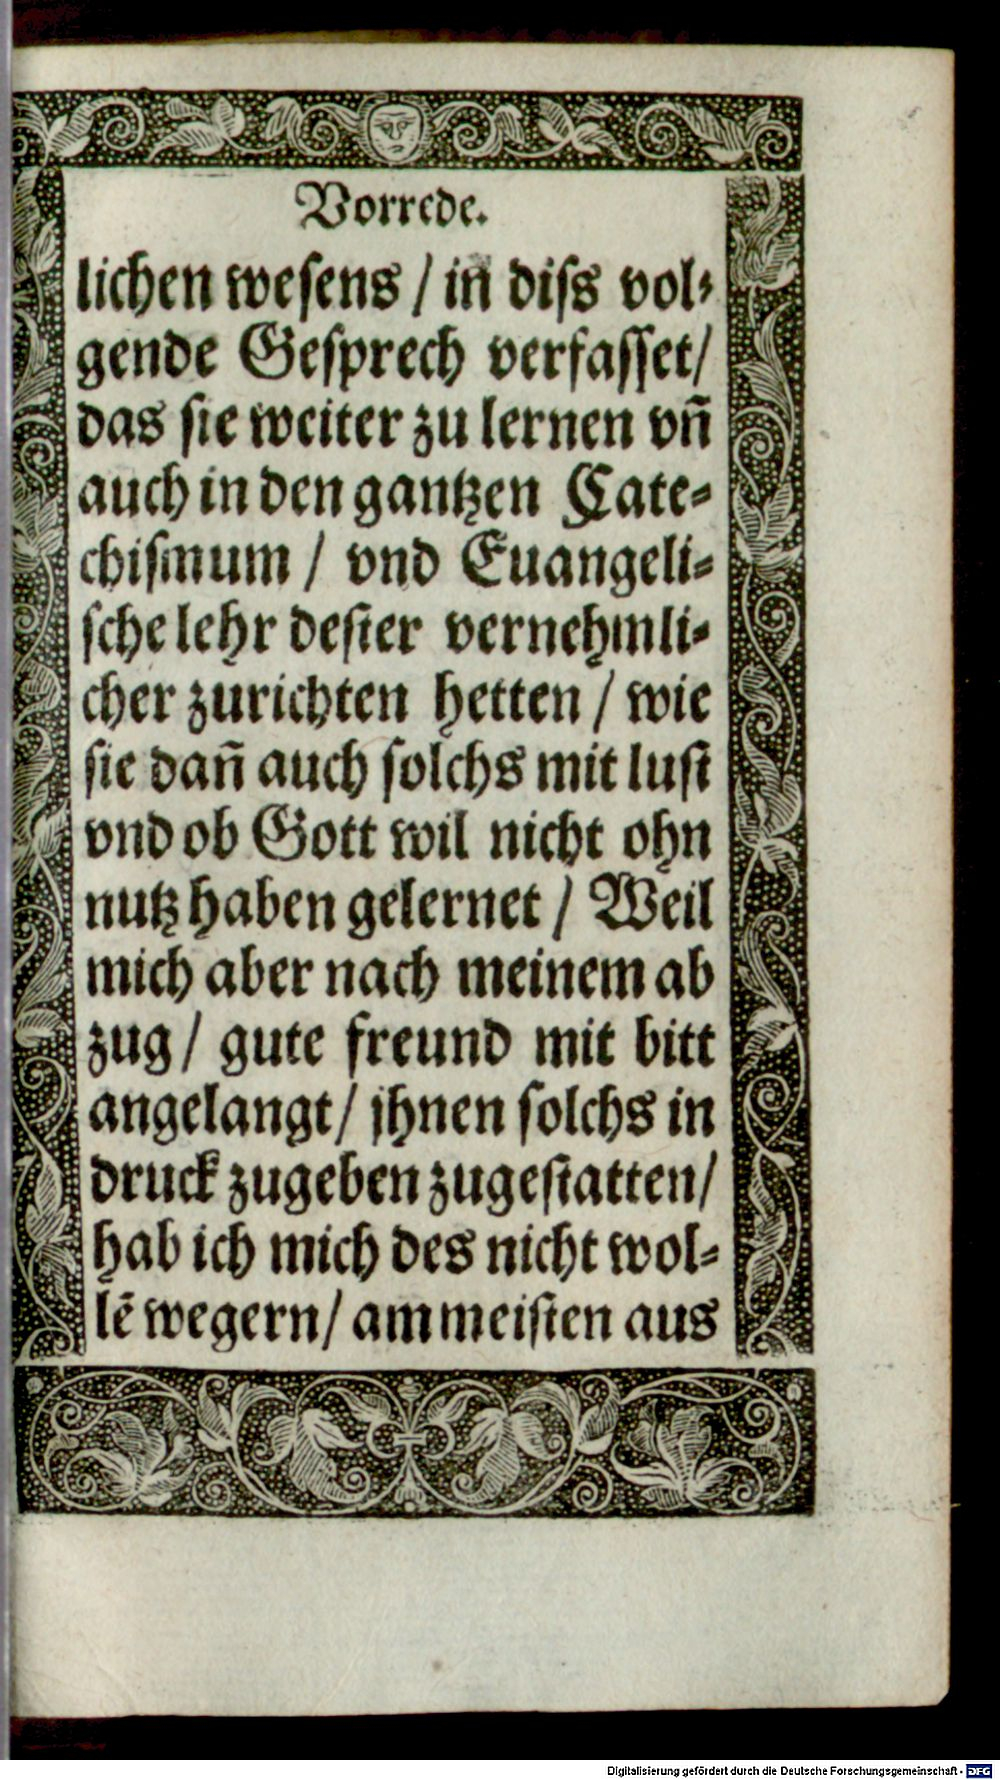 Vorrede.
lichen wesens / in diss vol⸗
gende Gesprech verfasset/
das sie weiter zu lernen vn̄
auch in den gantzen Cate⸗
chismum / vnd Euangeli⸗
sche lehr dester vernehmli⸗
cher zurichten hetten / wie
sie dan̄ auch solchs mit lust
vnd ob Gott wil nicht ohn
nutz haben gelernet / Weil
mich aber nach meinem ab
zug / gute freund mit bitt
angelangt / jhnen solchs in
druck zugeben zugestatten/
hab ich mich des nicht wol⸗
lē wegern/ am meisten aus
Digitalisierung gefördert durch die Deutsche Forschungsgemeinschaft - DFG